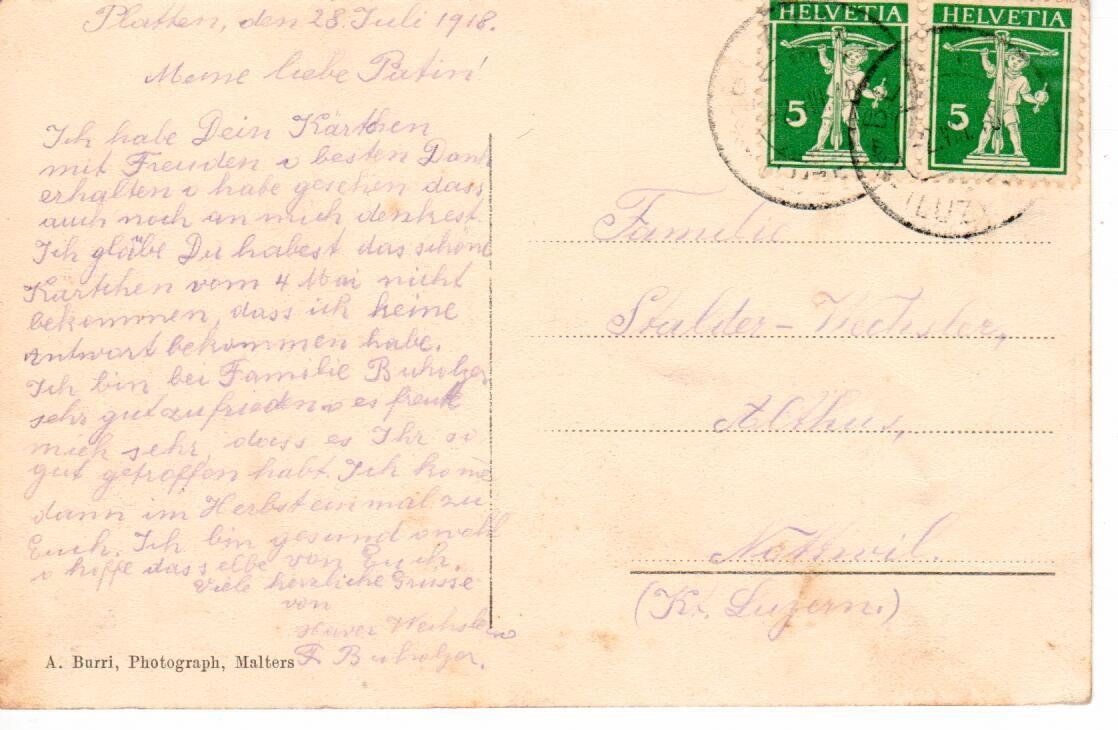 Platten, den 28. Juli 1918.
Meine liebe Patin!
Ich habe Dein Kärtchen
mit Freuden u besten Dank
erhalten u habe gesehen dass
auch noch an mich denkest.
Ich glaube Du habest das schöne
Kärtchen vom 4 Mai nicht
bekommen, dass ich keine
Antwort bekommen habe.
Ich bin bei Familie Buholzer
sehr gut zufrieden u es freut
mich sehr, dass es Ihr so
gut getroffen habt. Ich kome
dann im Herbst einmal zu
Euch. Ich bin gesund u wohl
u hoffe dasselbe von Euch.
Viele herzliche Grüsse
von
Xaver Wechsler
F. Buholzer.
A. Burri, Photograph, Malters
HELVETIA
5
HELVETIA
5
(LUZ.)
Familie
Stalder-Wechsler,
Althus,
Nottwil.
(Kt. Luzern.)